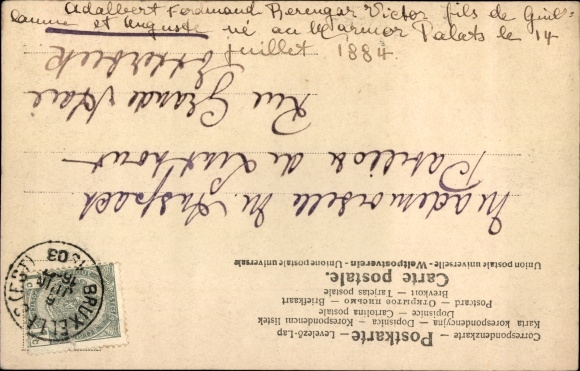 Adalbert Ferdinand Berengar Victor fils de Guil-
laume et Auguste né au Marmor Palais le 14
Juillet 1884.
Postkarte
Correspondenzkarte — Levelező-Lap
Karta korespondencyjna — Dopisnica — Korespondenční lístek
Dopisnice — Cartolina postale
Postcard — Открытое письмо — Briefkaart
Brevkort — Tarjetas postale
Carte postale.
Union postale universelle - Weltpostverein - Unione postale universale
Mademoiselle M. Anspach
Pavillon de Linthout
Rue Grande Haie
Etterbeek
BRUXELLES (EST)
03